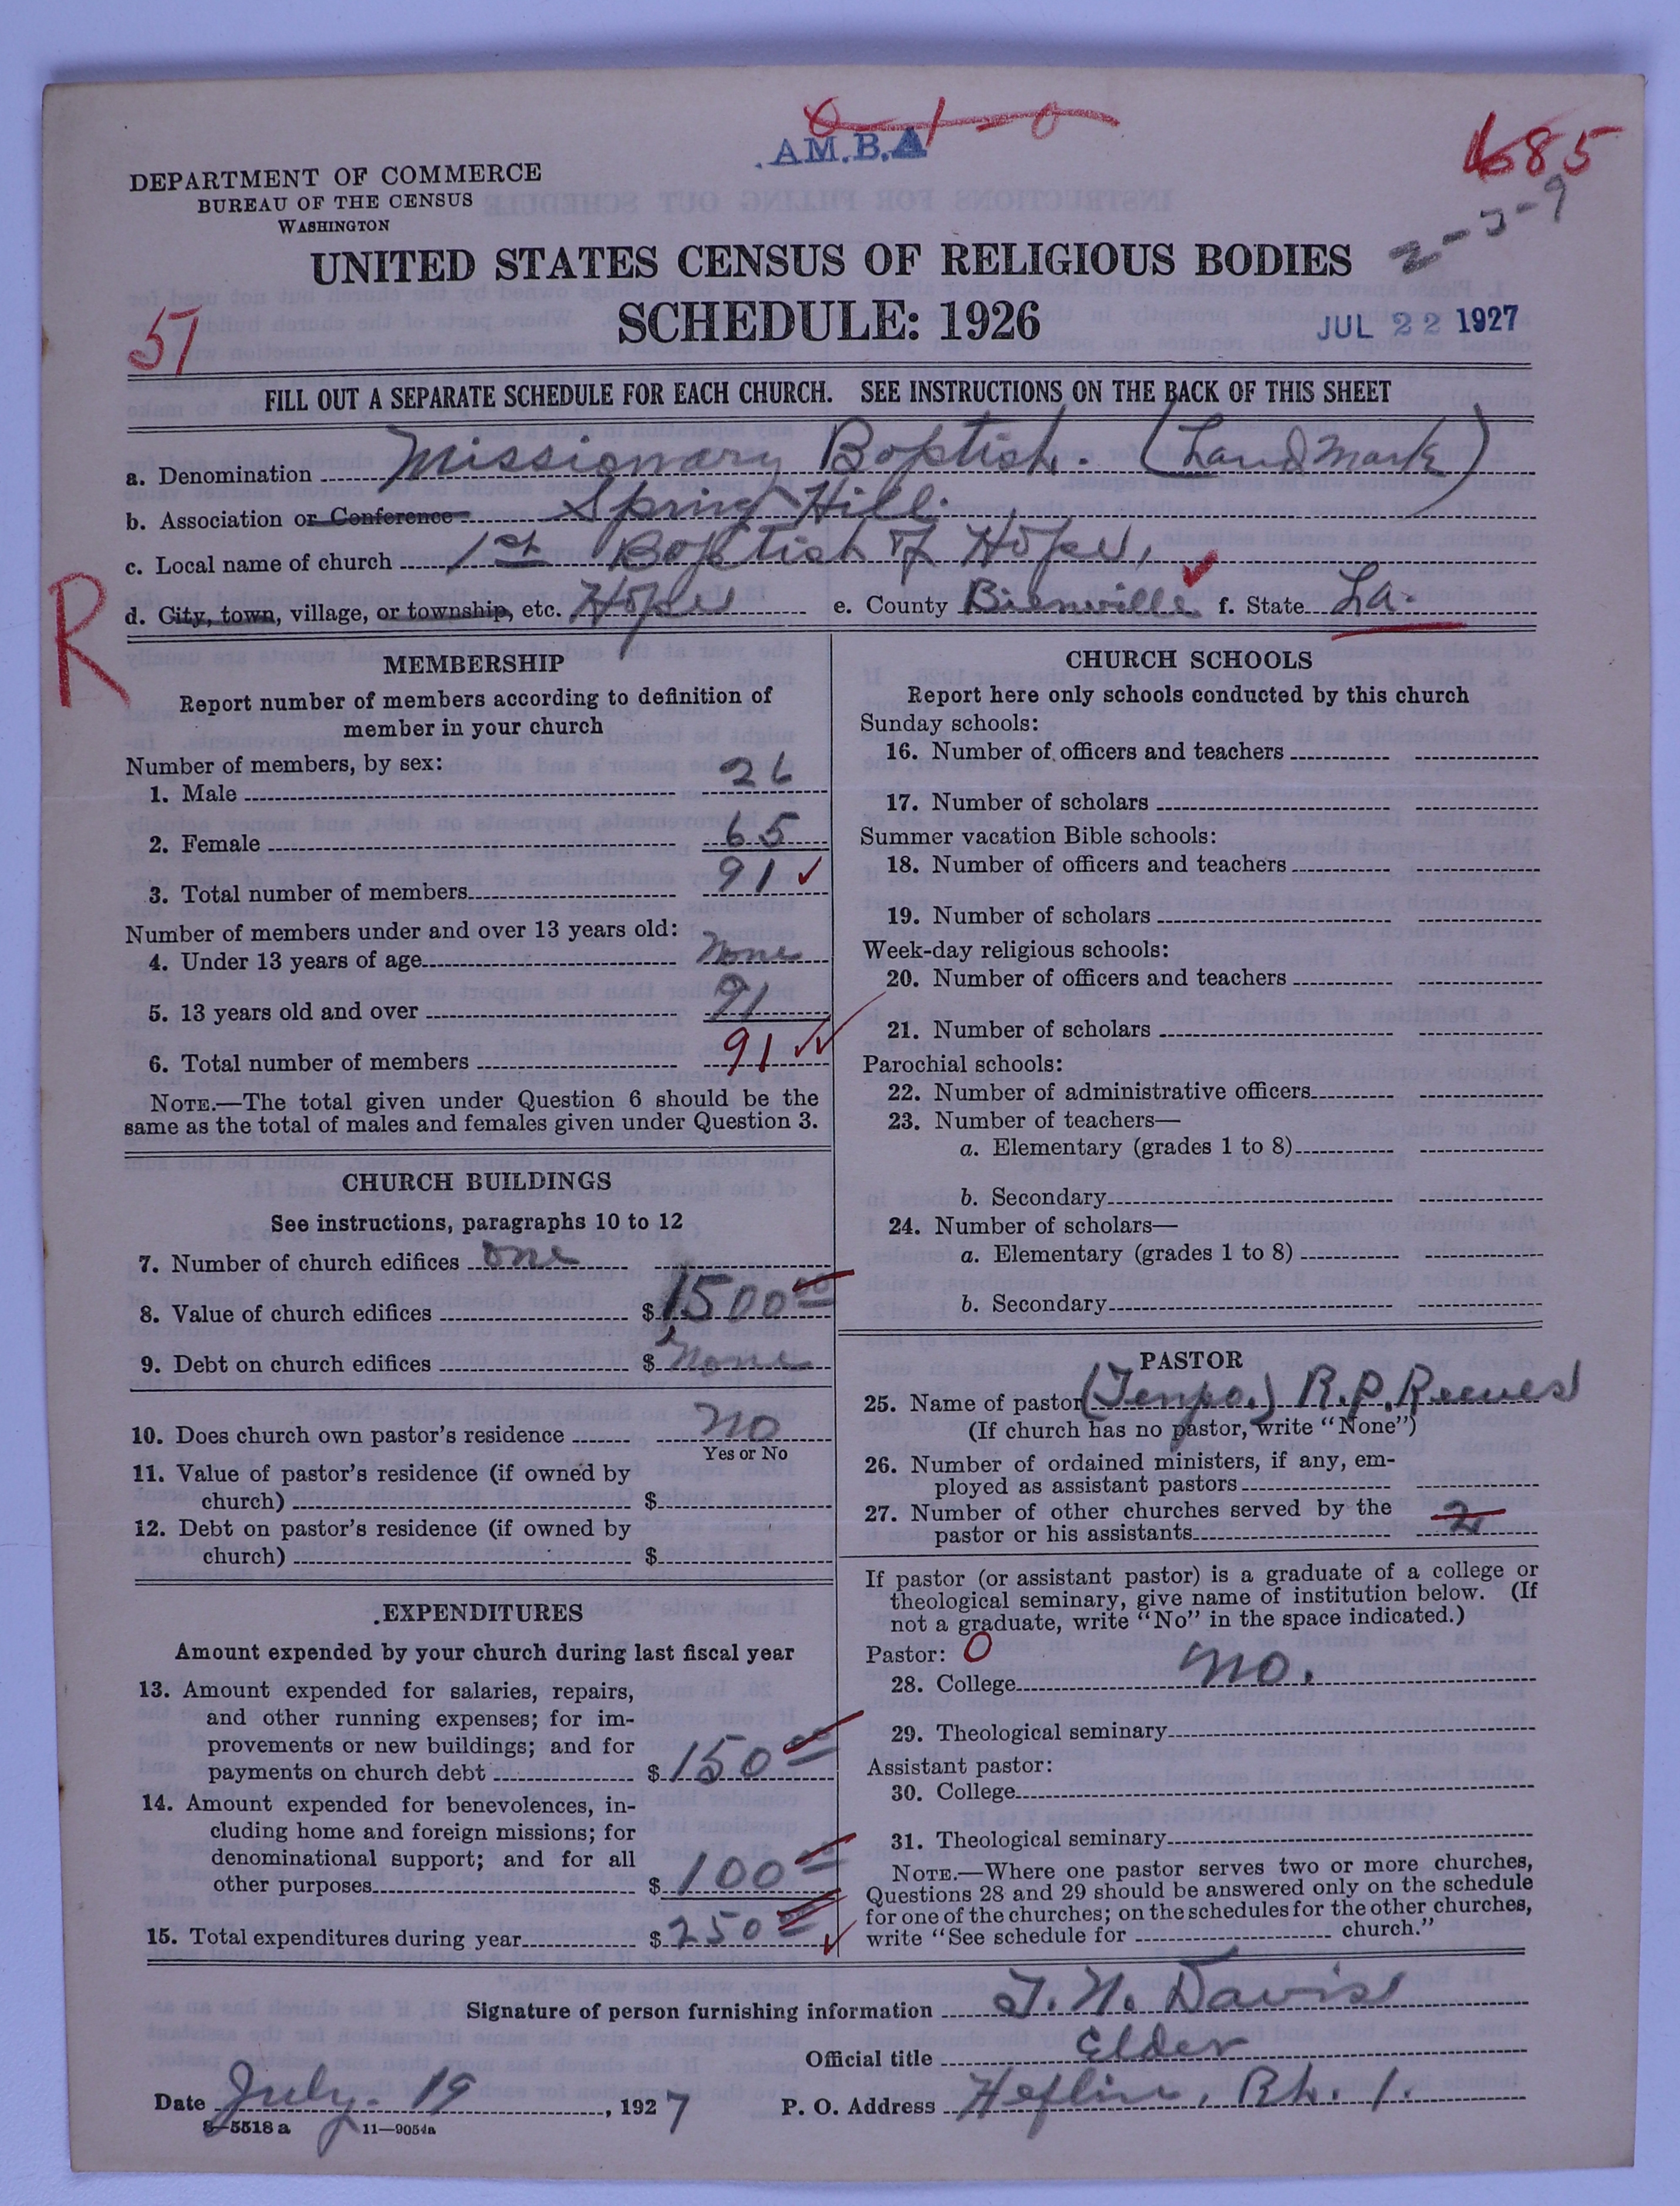 A.M.B.A
685
2-5-9
DEPARTMENT OF COMMERCE
BUREAU OF THE CENSUS
WASHINGTON
UNITED STATES CENSUS OF RELIGIOUS BODIES
SCHEDULE: 1926
JUL 22 1927
51
FILL OUT A SEPARATE SCHEDULE FOR EACH CHURCH. SEE INSTRUCTIONS ON THE BACK OF THIS SHEET
a. Denomination Missionary Baptist. (Land Mark)
b. Association or Conference Spring Hill.
c. Local name of church 1st Baptist of Hope,
R
d. City, town, village, or township, etc. Hope e. County Bienville f. State La.
MEMBERSHIP
Report number of members according to definition of
member in your church
Number of members, by sex:
1. Male 26
2. Female 65
3. Total number of members 91
Number of members under and over 13 years old:
4. Under 13 years of age None
5. 13 years old and over 91
6. Total number of members 91
NOTE.—The total given under Question 6 should be the
same as the total of males and females given under Question 3.
CHURCH BUILDINGS
See instructions, paragraphs 10 to 12
7. Number of church edifices one
8. Value of church edifices $1500 00
9. Debt on church edifices $ None
10. Does church own pastor's residence No
Yes or No
11. Value of pastor's residence (if owned by
church) $
12. Debt on pastor's residence (if owned by
church) $
EXPENDITURES
Amount expended by your church during last fiscal year
13. Amount expended for salaries, repairs,
and other running expenses; for im-
provements or new buildings; and for
payments on church debt $150 00
14. Amount expended for benevolences, in-
cluding home and foreign missions; for
denominational support; and for all
other purposes $100 00
15. Total expenditures during year $250 00
CHURCH SCHOOLS
Report here only schools conducted by this church
Sunday schools:
16. Number of officers and teachers
17. Number of scholars
Summer vacation Bible schools:
18. Number of officers and teachers
19. Number of scholars
Week-day religious schools:
20. Number of officers and teachers
21. Number of scholars
Parochial schools:
22. Number of administrative officers
23. Number of teachers—
a. Elementary (grades 1 to 8)
b. Secondary
24. Number of scholars—
a. Elementary (grades 1 to 8)
b. Secondary
PASTOR
25. Name of pastor (Tempo.) R.P. Reeves
(If church has no pastor, write "None")
26. Number of ordained ministers, if any, em-
ployed as assistant pastors
27. Number of other churches served by the
pastor or his assistants 2
If pastor (or assistant pastor) is a graduate of a college or
theological seminary, give name of institution below. (If
not a graduate, write "No" in the space indicated.)
Pastor: 0
28. College No.
29. Theological seminary
Assistant pastor:
30. College
31. Theological seminary
NOTE.—Where one pastor serves two or more churches,
Questions 28 and 29 should be answered only on the schedule
for one of the churches; on the schedules for the other churches,
write "See schedule for church."
Signature of person furnishing information T. N. Davis
Official title Elder
Date July. 19, 1927 P. O. Address Heflin, Rt. 1.
8—5518 a 11—9054a